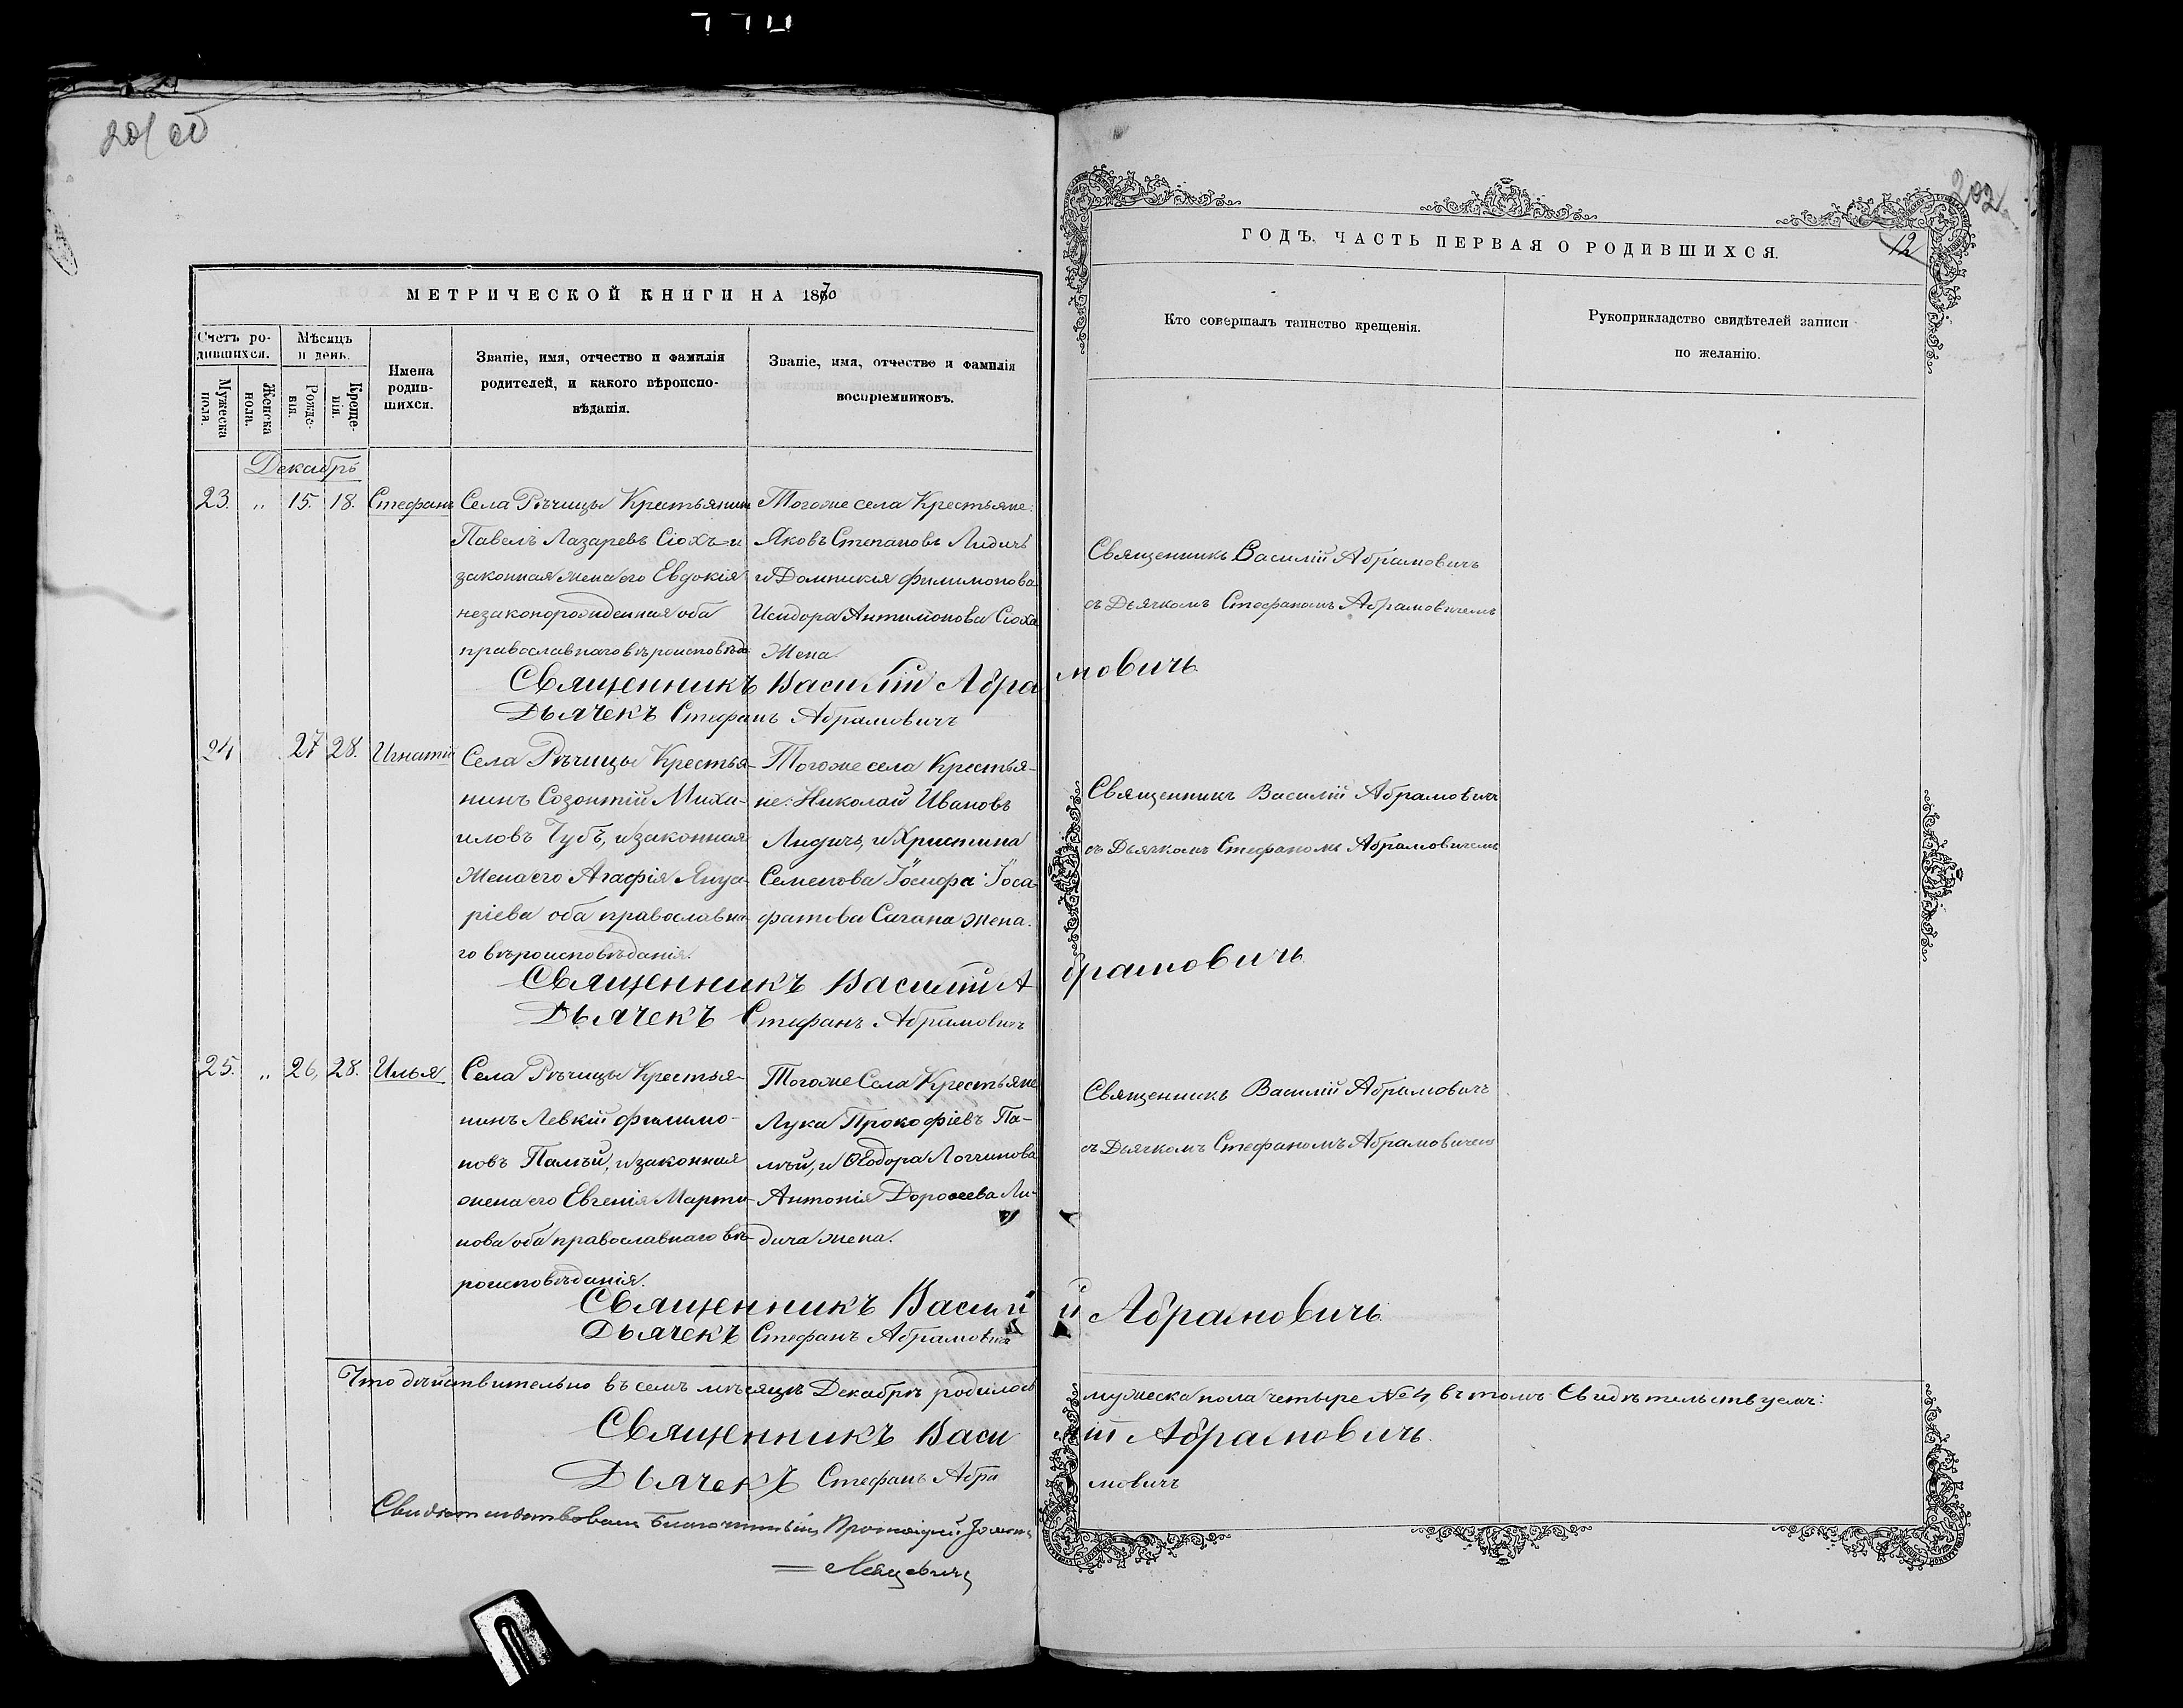 202
12
МЕТРИЧЕСКОЙ КНИГИ НА 1870
ГОДЪ, ЧАСТЬ ПЕРВАЯ О РОДИВШИХСЯ.
Счетъ ро-
дившихся.
Мужеска
пола.
Женска
пола.
Мѣсяцъ
и день.
Рожде-
нія.
Креще-
нія.
Имена
родив-
шихся.
Званіе, имя, отчество и фамилія
родителей, и какого вѣроиспо-
вѣданія.
Званіе, имя, отчество и фамилія
воспріемниковъ.
Кто совершалъ таинство крещенія.
Рукоприкладство свидѣтелей записи
по желанію.
Декабрь
23. „ 15. 18. Стефанъ
Села Рѣчицы Крестьянинъ
Павелъ Лазаревъ Сіохъ и
законная жена его Евдокія
незаконорожденная оба
православнаго вѣроисповѣда
Тогоже села Крестьяне:
Яковъ Степановъ Лидичъ
и Домникія Филимонова
Исидора Антимонова Сіоха
жена.
Священникъ Василій Абрамовичъ
съ Дьячкомъ Стефаномъ Абрамовичемъ
Священникъ Василій Абрамовичъ
Дьячекъ Стефанъ Абрамовичъ
24 27 28. Игнатій
Села Рѣчицы Крестья-
нинъ Созонтій Миха-
иловъ Чубъ, и законная
жена его Агафія Януа-
ріева оба православна-
го вѣроисповѣданія.
Тогоже села Крестья-
не: Николай Ивановъ
Лидичъ, и Христина
Семенова Іосифа Іоса-
фатова Сагана жена.
Священникъ Василій Абрамовичъ
съ Дьячкомъ Стефаномъ Абрамовичемъ
Священникъ Василій Абрамовичъ
Дьячекъ Стефанъ Абрамовичъ
25. „ 26, 28. Илья
Села Рѣчицы Крестья-
нинъ Левкій Филимо-
новъ Палѣй, и законная
жена его Евгенія Марти-
нова оба православнаго вѣ-
роисповѣданія.
Тогоже Села Крестьяне
Лука Прокофіевъ Па-
лѣй, и Ѳеодора Логгинова
Антонія Дороѳеева Ли-
дича жена.
Священникъ Василій Абрамовичъ
съ Дьячкомъ Стефаномъ Абрамовичемъ
Священникъ Василій Абрамовичъ
Дьячекъ Стефанъ Абрамовичъ
Что дѣйствительно въ семъ мѣсяцѣ Декабрѣ родилось мужеска пола четыре № 4, въ томъ Свидѣтельствуемъ:
Священникъ Василій Абрамовичъ
Дьячекъ Стефанъ Абрамовичъ
Свидѣтельствовалъ Благочинный Протоіерей